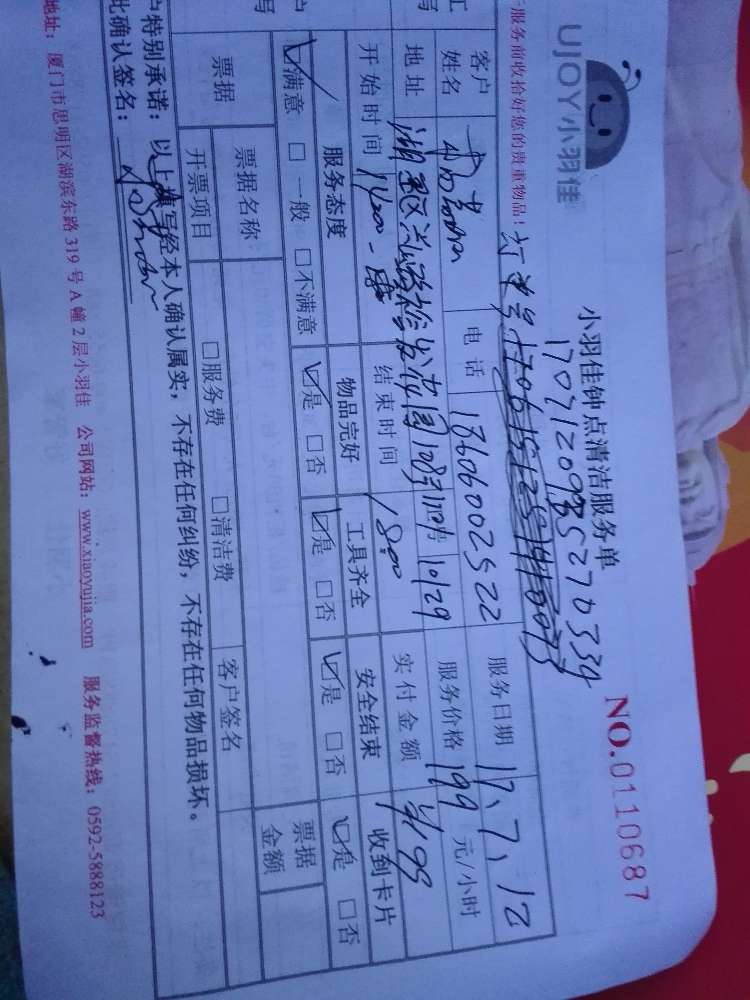 UJOY小羽佳
小羽佳钟点清洁服务单
NO.0110687
服务前收拾好您的贵重物品!
客户姓名
电话 18606002522
服务日期 17、7、12
地址
10/29
服务价格 199 元/小时
开始时间 14:00
结束时间 18:00
实付金额 ¥199
服务态度 物品完好 工具齐全 安全结束 收到卡片
☑满意 □一般 □不满意 ☑是 □否 ☑是 □否 ☑是 □否 ☑是 □否
票据 票据名称 票据金额
开票项目 □服务费 □清洁费 客户签名
户特别承诺：以上填写经本人确认属实，不存在任何纠纷，不存在任何物品损坏。
此确认签名：
地址：厦门市思明区湖滨东路 319 号 A 幢 2 层小羽佳 公司网站：www.xiaoyujia.com 服务监督热线：0592-5888123